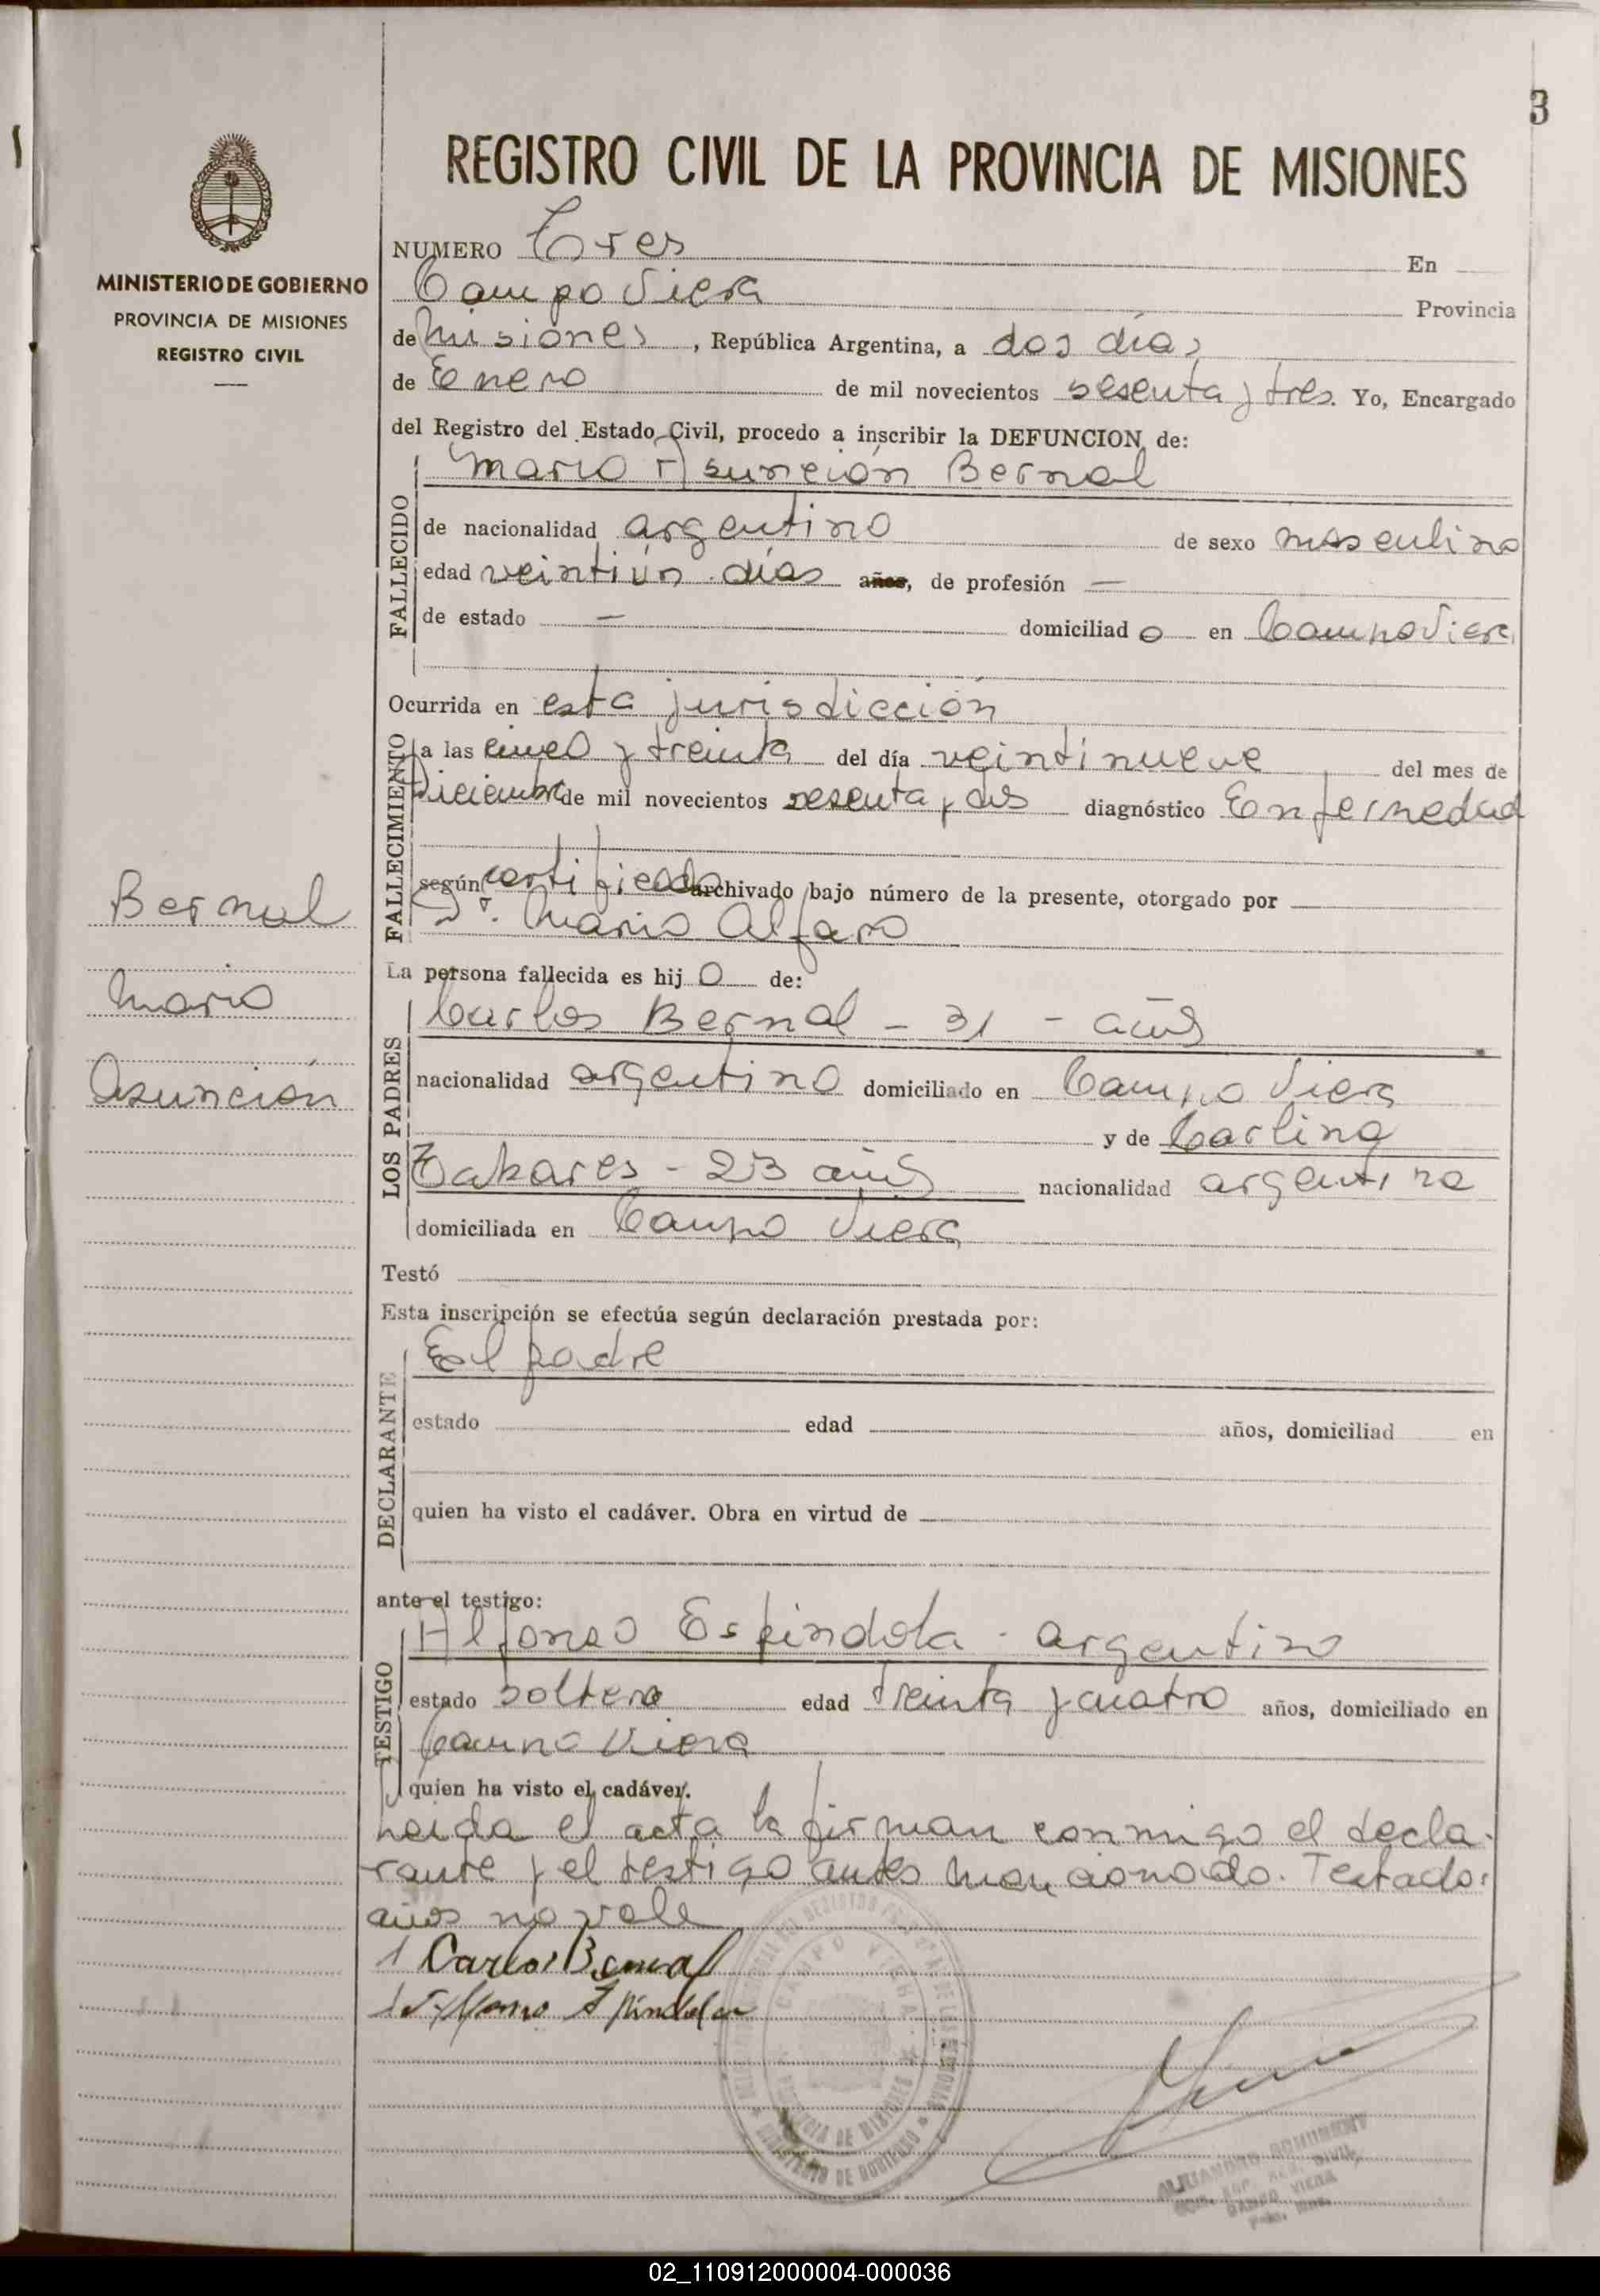 3
REGISTRO CIVIL DE LA PROVINCIA DE MISIONES
MINISTERIO DE GOBIERNO
PROVINCIA DE MISIONES
REGISTRO CIVIL
NUMERO Tres En
Campo Viera Provincia
de Misiones, República Argentina, a dos días
de Enero de mil novecientos sesenta y tres. Yo, Encargado
del Registro del Estado Civil, procedo a inscribir la DEFUNCION de:
FALLECIDO
Mario Asunción Bernal
de nacionalidad argentino de sexo masculino
edad veintiún días años, de profesión —
de estado — domiciliado en Campo Viera
Ocurrida en esta jurisdicción
FALLECIMIENTO
a las cinco y treinta del día veintinueve del mes de
Diciembre de mil novecientos sesenta y dos diagnóstico Enfermedad
según certificado archivado bajo número de la presente, otorgado por
Dr. Mario Alfaro
Bernal
Mario
Asunción
La persona fallecida es hijo de:
LOS PADRES
Carlos Bernal - 31 - años
nacionalidad argentino domiciliado en Campo Viera
y de Carlina
Takares - 23 años nacionalidad argentina
domiciliada en Campo Viera
Testó
Esta inscripción se efectúa según declaración prestada por:
DECLARANTE
El padre
estado edad años, domiciliad en
quien ha visto el cadáver. Obra en virtud de
ante el testigo:
TESTIGO
Alfonso Espindola - argentino
estado soltero edad treinta y cuatro años, domiciliado en
Campo Viera
quien ha visto el cadáver.
Leida el acta la firman conmigo el decla-
rante y el testigo antes mencionado. Testado:
años no vale
Carlos Bernal
Espindola
CAMPO VIERA
PROVINCIA DE MISIONES
MINISTERIO DE GOBIERNO
ALEJANDRO
CAMPO VIERA
02_110912000004-000036